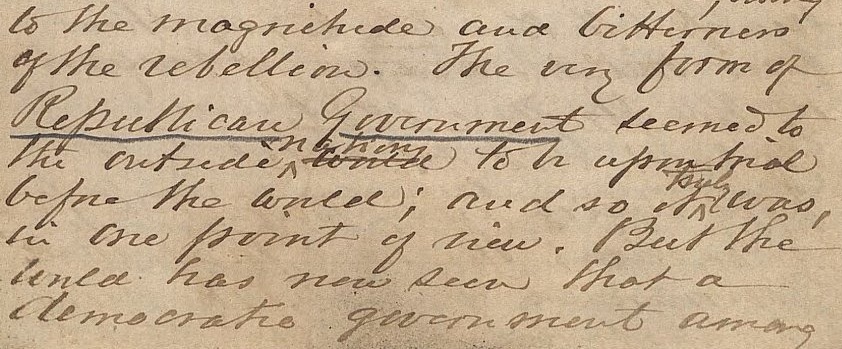 to the magnitude and bitterness
of the rebellion. The very form of
Republican Government seemed to
nations
the outside world to be upon trial
truly
before the world; and so it was,
in one point of view. But the
world has now seen that a
democratic government among